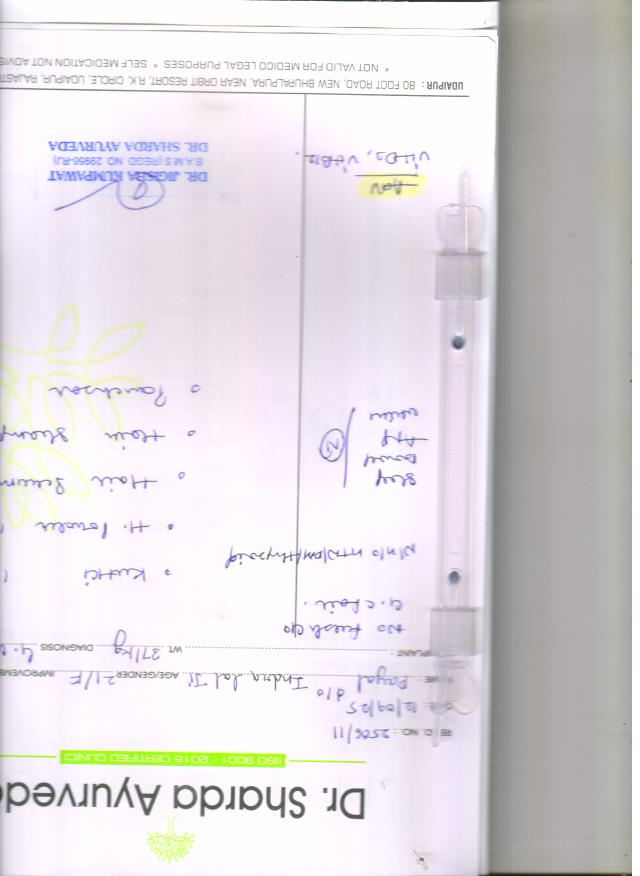 Dr. Sharda Ayurved
ISO 9001 : 2015 CERTIFIED CLINIC
NO. : 2506/11
12/09/25
Payal d/o Indra lal Ji AGE/GENDER 21/F IMPROVEME
PLAINT : WT. 37/kg DIAGNOSIS
No fresh c/o
N/H/O HTN/DM/Thyroid
Sleep
Bowel
App
Urine
N
Kutki
H. Powder
Hair Serum
Hair
Adv
Vit D3, Vit B12.
DR. JIGISHA KUMPAWAT
B.A.M.S (REGD. NO. 29956-RJ)
DR. SHARDA AYURVEDA
UDAIPUR : 80 FOOT ROAD, NEW BHUPALPURA, NEAR ORBIT RESORT, R.K. CIRCLE, UDAIPUR, RAJAST
* NOT VALID FOR MEDICO LEGAL PURPOSES * SELF MEDICATION NOT ADVIS